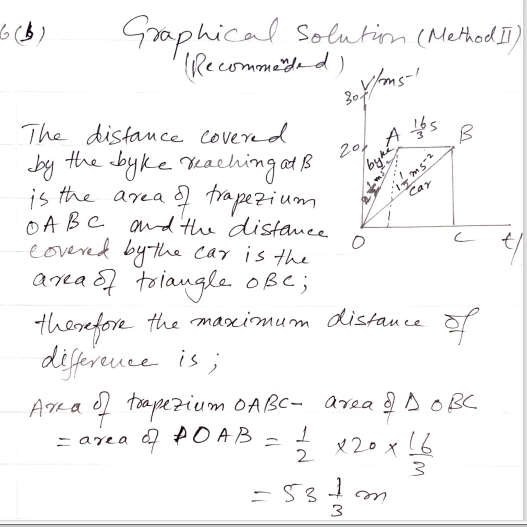 6(b) Graphical Solution (Method II)
(Recommended)
V/ms⁻¹
30
20
A 16/3 s B
byke
car
1 1/2 ms⁻²
O C t/
The distance covered
by the byke reaching at B
is the area of trapezium
OABC and the distance
covered by the car is the
area of triangle OBC;
therefore the maximum distance of
difference is;
Area of trapezium OABC - area of Δ OBC
= area of ΔOAB = 1/2 × 20 × 16/3
= 53 1/3 m